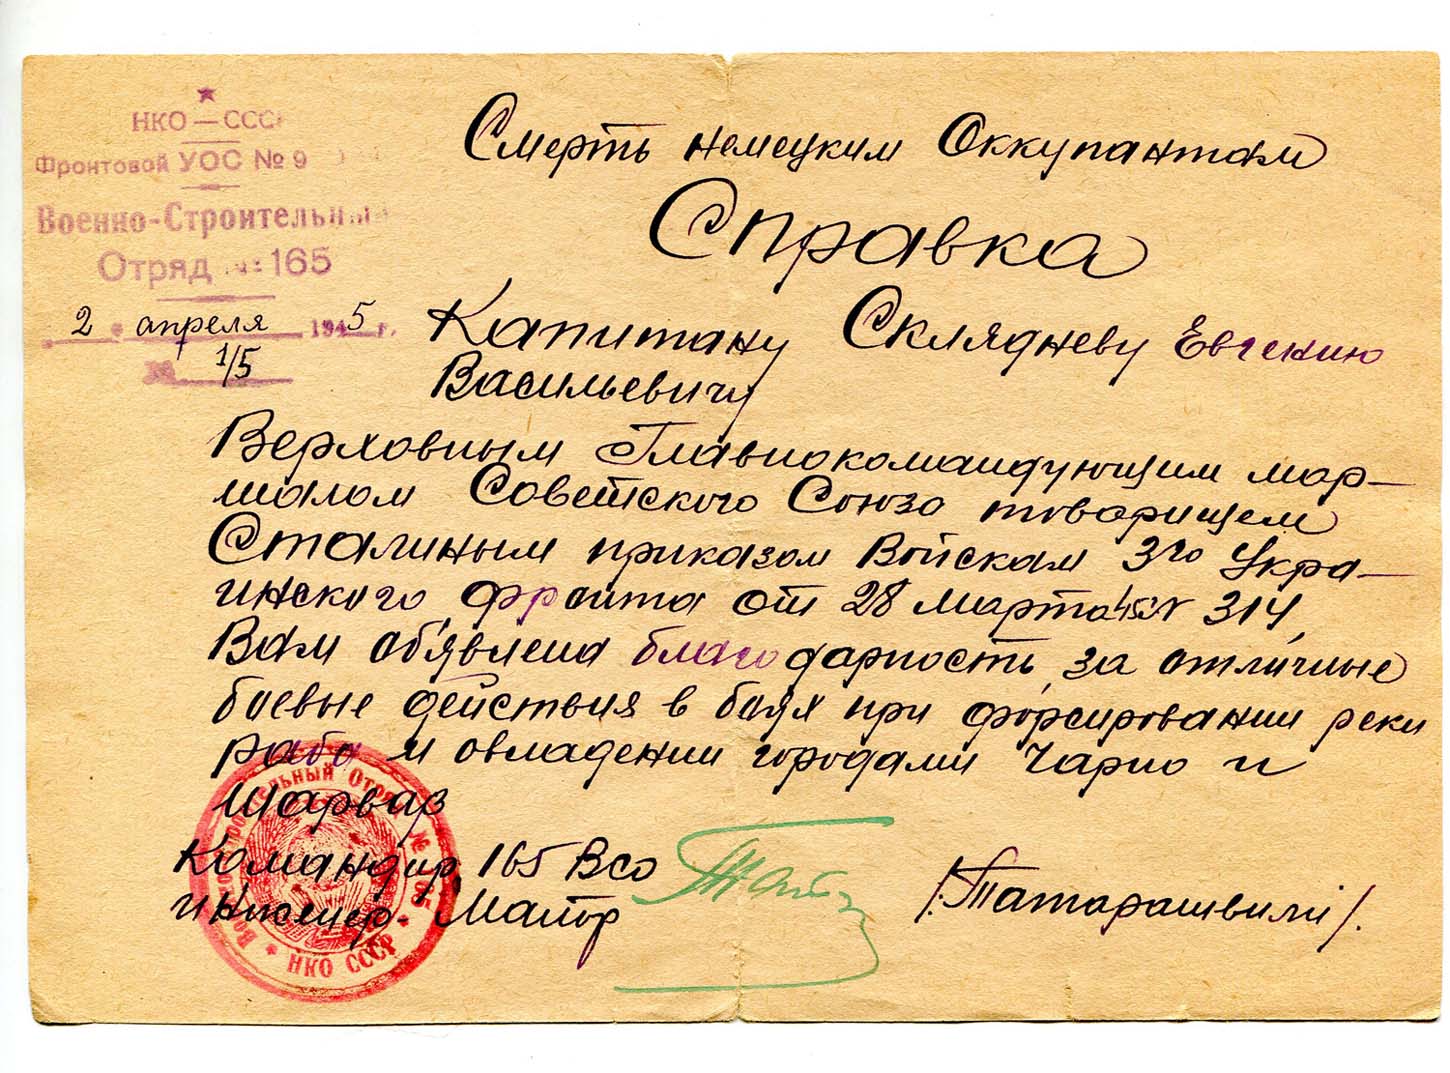 НКО — СССР
Фронтовой УОС № 9
Военно-Строительный
Отряд № 165
2 апреля 1945 г.
№ 1/5
Смерть немецким Оккупантам
Справка
Капитану Склядневу Евгению
Васильевичу
Верховным Главнокомандующим мар-
шалом Советского Союза товарищем
Сталиным приказом Войскам 3го Укра-
инского фронта от 28 марта 45г N 314
Вам об'явлена благодарность за отличные
боевые действия в боях при форсировании реки
раба и овладении городами Чарно и
Шарвар
Командир 165 Всо
инженер-Майор
/Татарашвили/.
Военно-Строительный Отряд №
НКО СССР